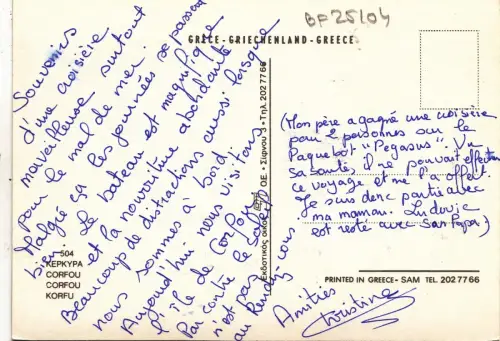 BF25/04
GRÈCE - GRIECHENLAND - GREECE
Souvenirs
d'une croisière
merveilleuse surtout
pour le mal de mer.
Malgré ça les journées se passent
bien. Le bateau est magnifique
et la nourriture abondante
Beaucoup de distractions aussi lorsque
nous sommes à bord.
Aujourd'hui nous visitons
l'île de Corfou
Par contre le soleil
n'est pas
au Rendez-vous.
Amitiés
Christine
(Mon père a gagné une croisière
pour 2 personnes sur le
Paquebot "Pegasus". Vu
sa santé, il ne pouvait effectuer
ce voyage et me l'a offert.
Je suis donc partie avec
ma maman. Ludovic
est resté avec son Papa)
504
ΚΕΡΚΥΡΑ
CORFOU
CORFOU
KORFU
Ο.Ε. • Σίφνου 3 • Τηλ. 202 77 66
PRINTED IN GREECE - SAM TEL. 202 77 66